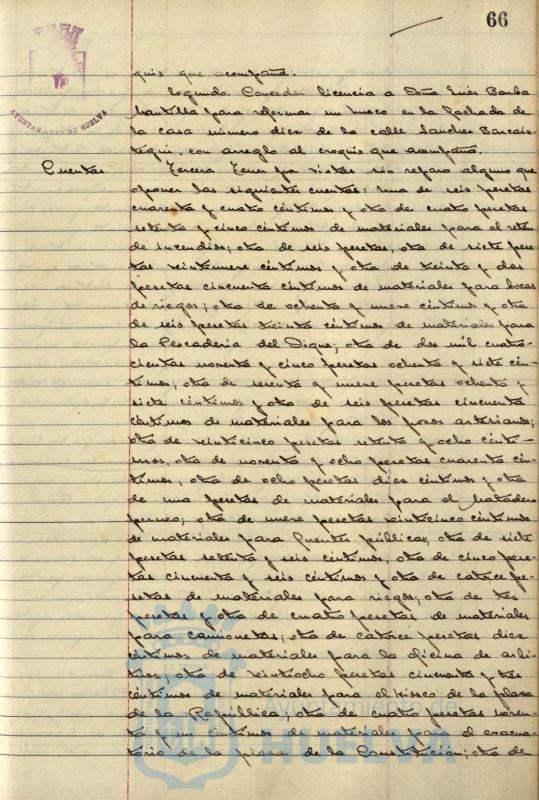 66
AYUNTAMIENTO DE HUELVA
quis que acompaña.
Segundo. Conceder licencia a Doña Inés Barba
Mantilla para reformar un hueco en la fachada de
la casa número diez de la calle Sanchez Barcais-
tegui, con arreglo al croquis que acompaña.
Cuentas
Tercera Tener por vistas sin reparo alguno que
oponer las siguientes cuentas: una de seis pesetas
cuarenta y cuatro céntimos y otra de cuatro pesetas
setenta y cinco céntimos de materiales para el retén
de incendios; otra de seis pesetas, otra de siete pese-
tas veintinueve céntimos y otra de treinta y dos
pesetas cincuenta céntimos de materiales para bocas
de riegos; otra de ochenta y nueve céntimos y otra
de seis pesetas treinta céntimos de materiales para
la Pescaderia del Dique; otra de dos mil cuatro-
cientas noventa y cinco pesetas ochenta y siete cén-
timos; otra de sesenta y nueve pesetas ochenta y
siete céntimos y otra de seis pesetas cincuenta
céntimos de materiales para los pozos artesianos;
otra de veinticinco pesetas setenta y ocho cénti-
mos, otra de noventa y ocho pesetas cuarenta cén-
timos, otra de ocho pesetas diez céntimos y otra
de una pesetas de materiales para el Matadero
perneo; otra de nueve pesetas veinticinco céntimos
de materiales para fuentes públicas, otra de siete
pesetas setenta y seis céntimos, otra de cinco pese-
tas cincuenta y seis céntimos y otra de catorce pe-
setas de materiales para riegos; otra de tres
pesetas y otra de cuatro pesetas de materiales
para camionetas; otra de catorce pesetas diez
céntimos de materiales para la oficina de arbi-
trios; otra de veintiocho pesetas cincuenta y tres
céntimos de materiales para el kiosco de la plaza
de la República, otra de cuatro pesetas noven-
ta y un céntimos de materiales para el evacua-
torio de la plaza de la Constitución; otra de
Ayuntamiento de
HUELVA